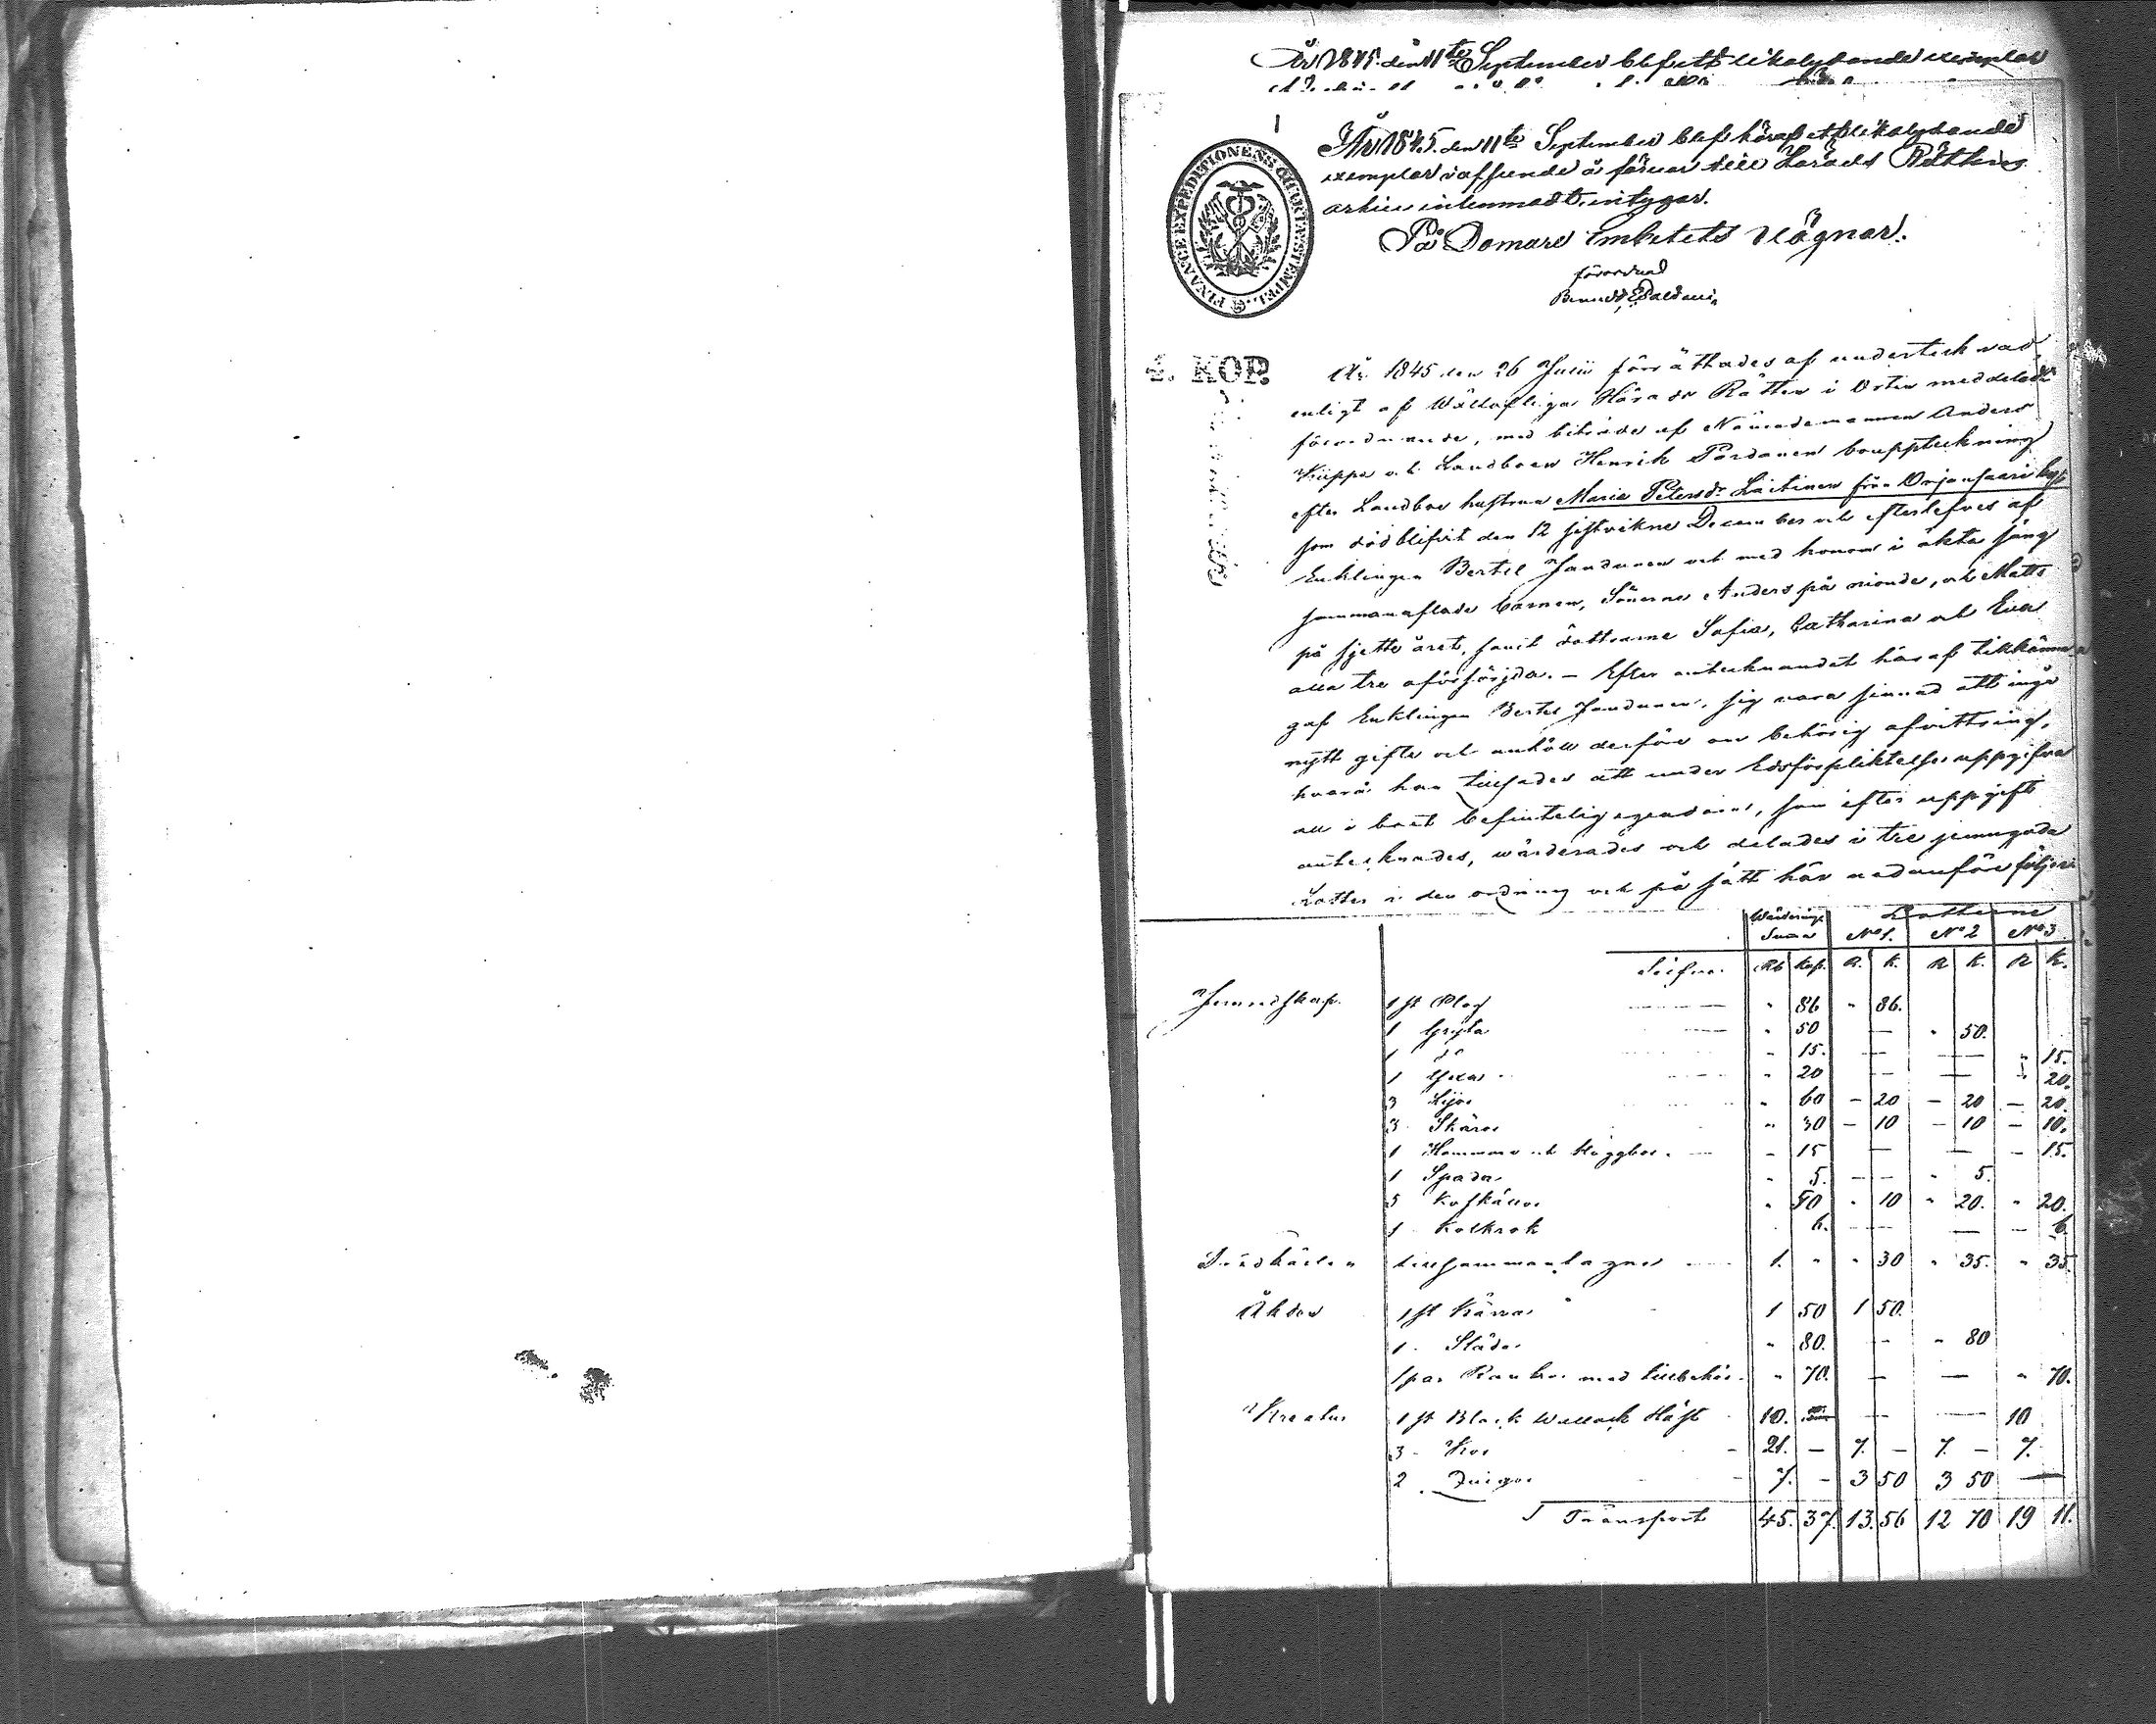 År 1845 den 11te September blef ett likalydande exemplar
År 1845. den 11te September blef häraf ett likalydande
exemplar i afseende å förvar till Härads Rättens
arkiv inlemnadt, intygar.
På Domare Embetets Vägnar.
förordnad
FINANCE EXPEDITIONENS CHARTÆ STEMPEL.
4. KOP.
År 1845 den 26 Junii förrättades af undertecknad
enligt af Wällofliga Härads Rätten i Orten meddeladt
förordnande, med biträde af Nämndemannen Anders
Kiippa och Landboen Henrik Pardanen bouppteckning
efter Landboe hustrun Maria Petersdr Laitinen från Orjansaari by,
som död blifvit den 12 sistvikne December och efterlefves af
Enklingen Bertel Jandunen och med honom i äkta säng
sammanaflade barnen, Sönerne Anders på nionde, och Matts
på sjette året, samt döttrarne Sofia, Catharina och Eva
alla tre aförsörjda. – Efter antecknandet häraf tillkänna
gaf Enklingen Bertel Jandunen, sig vara sinnad att ingå
nytt gifte och anhöll derföre om behörig afvittring,
hvarå han tillsades att under Edsförpliktelse uppgifva
all i boet befintelig egendom, som efter uppgift
antecknades, wärderades och delades i tre jemngoda
Lotter i den ordning och på sätt här nedanföre följer:
Wärderings Summa Lotterne
No 1. No 2 No 3
Silfver. Rb Kop. R. K. R K. R K.
Jernredskap. 1 st Plog " 86 " 86.
1 Gryta " 50 — " 50.
1 " 15. — — " 15.
1 Yxa " 20 — — " 20.
3 Lijor " 60 – 20 – 20 – 20.
3 Skäror " 30 – 10 – 10 – 10.
1 Hammare och – 15 — — – 15.
1 Spada " 5. — " 5.
5 " 50 " 10 " 20. " 20.
1 Kolkrok " 6. — — – 6.
Trädkärlen tillsammantagne 1. " " 30 " 35. " 35.
Åkdon 1 st Kärra 1 50 1 50.
1 Släde " 80. — " 80
1 par med tillbehör " 70. — — " 70.
Kreatur 1 st Black Wallack Häst 10. — — — 10
3 Kor 21. – 7. – 7. – 7.
2 Qvigor 7. – 3 50 3 50 —
Transport 45. 37. 13. 56 12 70 19 11.